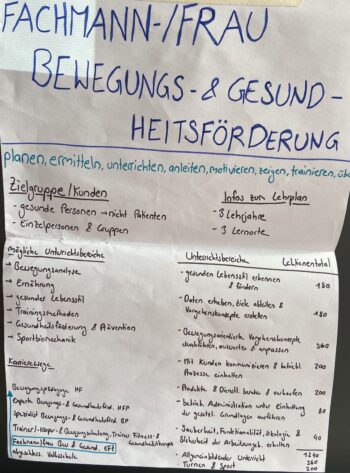 FACHMANN-/FRAU
BEWEGUNGS- & GESUND-
HEITSFÖRDERUNG
planen, ermitteln, unterrichten, anleiten, motivieren, zeigen, trainieren,
Zielgruppe/Kunden
- gesunde Personen → nicht Patienten
- Einzelpersonen & Gruppen
Infos zum Lehrplan
- 3 Lehrjahre
- 3 Lernorte
mögliche Unterrichtsbereiche
→ Bewegungsanalyse
→ Ernährung
→ gesunder Lebensstil
→ Trainingsmethoden
→ Gesundheitsförderung & Prävention
→ Sportbiomechanik
Karrierewege
Bewegungspädagoge HF
Experte Bewegungs- & Gesundheitsförd. HFP
Spezialist Bewegungs- & Gesundheitsförd. BP
Fachmann/frau Bew & Gesund. EFZ
abgeschloss. Volksschule
Unterrichtsbereiche Lektionentotal
- gesunden Lebensstil erkennen
& fördern 180
- Daten erheben, Ziele ableiten &
Vorgehenskonzepte erstellen 180
- Bewegungsorientierte Vorgehenskonzepte
durchführen, auswerten & anpassen 360
- Mit Kunden kommunizieren & betriebl.
Prozesse einhalten 200
- Produkte & Dienstl. bewerben & verkaufen 200
- betrieb. Administration unter Einhaltung
der gesetzl. Grundlagen ausführen 80
- Sauberkeit, Funktionalität, Ökologie &
Sicherheit der Arbeitsumgeb. erhalten 40
- Allgemeinbildender Unterricht 360
- Turnen & Sport 200